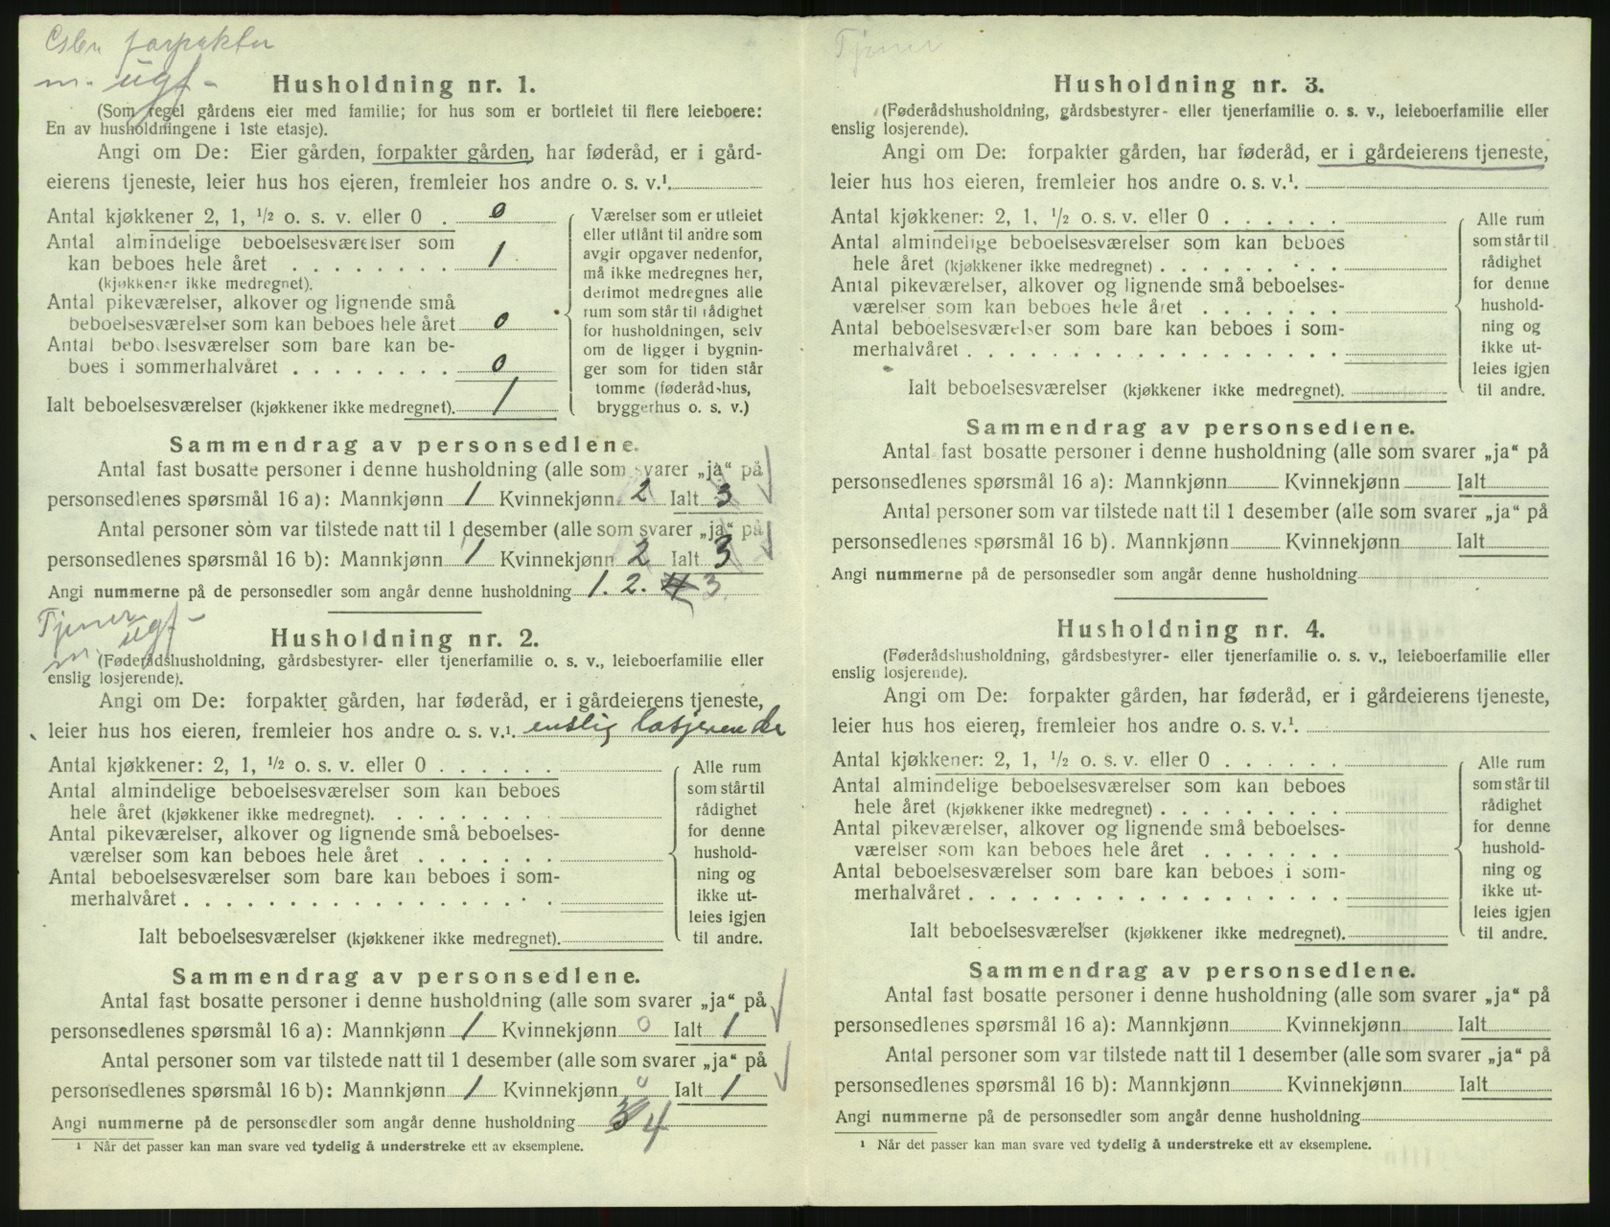 forpakter
m. ugf -
Husholdning nr. 1.
(Som regel gårdens eier med familie; for hus som er bortleiet til flere leieboere:
En av husholdningene i 1ste etasje).
Angi om De: Eier gården, forpakter gården, har føderåd, er i gård-
eierens tjeneste, leier hus hos eieren, fremleier hos andre o. s. v.¹
Antal kjøkkener 2, 1, ½ o. s. v. eller 0 . 0
Antal almindelige beboelsesværelser som
kan beboes hele året . . . . . . . . 1
(kjøkkener ikke medregnet).
Antal pikeværelser, alkover og lignende små
beboelsesværelser som kan beboes hele året 0
Antal beboelsesværelser som bare kan be-
boes i sommerhalvåret . . . . . . . . 0
Ialt beboelsesværelser (kjøkkener ikke medregnet). 1
Værelser som er utleiet
eller utlånt til andre som
avgir opgaver nedenfor,
må ikke medregnes her,
derimot medregnes alle
rum som står til rådighet
for husholdningen, selv
om de ligger i bygnin-
ger som for tiden står
tomme (føderådshus,
bryggerhus o. s. v.)
Sammendrag av personsedlene.
Antal fast bosatte personer i denne husholdning (alle som svarer „ja“ på
personsedlenes spørsmål 16 a): Mannkjønn 1 Kvinnekjønn 2 Ialt 3
Antal personer som var tilstede natt til 1 desember (alle som svarer „ja“ på
personsedlenes spørsmål 16 b): Mannkjønn 1 Kvinnekjønn 2 Ialt 3
Angi nummerne på de personsedler som angår denne husholdning 1. 2. 4 3.
Tjener
m. ugf -
Husholdning nr. 2.
(Føderådshusholdning, gårdsbestyrer- eller tjenerfamilie o. s. v., leieboerfamilie eller
enslig losjerende).
Angi om De: forpakter gården, har føderåd, er i gårdeierens tjeneste,
leier hus hos eieren, fremleier hos andre o. s. v.¹. enslig losjerende
Antal kjøkkener: 2, 1, ½ o. s. v. eller 0 . . . . . .
Antal almindelige beboelsesværelser som kan beboes
hele året (kjøkkener ikke medregnet). . . . . . . . .
Antal pikeværelser, alkover og lignende små beboelses-
værelser som kan beboes hele året . . . . . . .
Antal beboelsesværelser som bare kan beboes i som-
merhalvåret . . . . . . . . . . . . . . . . .
Ialt beboelsesværelser (kjøkkener ikke medregnet).
Alle rum
som står til
rådighet
for denne
hushold-
ning og
ikke ut-
leies igjen
til andre.
Sammendrag av personsedlene.
Antal fast bosatte personer i denne husholdning (alle som svarer „ja“ på
personsedlenes spørsmål 16 a): Mannkjønn 1 Kvinnekjønn 0 Ialt 1
Antal personer som var tilstede natt til 1 desember (alle som svarer „ja“ på
personsedlenes spørsmål 16 b): Mannkjønn 1 Kvinnekjønn 0 Ialt 1
Angi nummerne på de personsedler som angår denne husholdning 4
¹ Når det passer kan man svare ved tydelig å understreke ett av eksemplene.
Tjener
Husholdning nr. 3.
(Føderådshusholdning, gårdsbestyrer- eller tjenerfamilie o. s. v., leieboerfamilie eller
enslig losjerende).
Angi om De: forpakter gården, har føderåd, er i gårdeierens tjeneste,
leier hus hos eieren, fremleier hos andre o. s. v.¹.
Antal kjøkkener: 2, 1, ½ o. s. v. eller 0 . . . . . .
Antal almindelige beboelsesværelser som kan beboes
hele året (kjøkkener ikke medregnet) . . . . . . . . .
Antal pikeværelser, alkover og lignende små beboelses-
værelser som kan beboes hele året . . . . . . .
Antal beboelsesværelser som bare kan beboes i som-
merhalvåret . . . . . . . . . . . . . . . . .
Ialt beboelsesværelser (kjøkkener ikke medregnet).
Alle rum
som står til
rådighet
for denne
hushold-
ning og
ikke ut-
leies igjen
til andre.
Sammendrag av personsedlene.
Antal fast bosatte personer i denne husholdning (alle som svarer „ja“ på
personsedlenes spørsmål 16 a): Mannkjønn Kvinnekjønn Ialt
Antal personer som var tilstede natt til 1 desember (alle som svarer „ja“ på
personsedlenes spørsmål 16 b). Mannkjønn Kvinnekjønn Ialt
Angi nummerne på de personsedler som angår denne husholdning
Husholdning nr. 4.
(Føderådshusholdning, gårdsbestyrer- eller tjenerfamilie o. s. v., leieboerfamilie eller
enslig losjerende).
Angi om De: forpakter gården, har føderåd, er i gårdeierens tjeneste,
leier hus hos eieren, fremleier hos andre o. s. v.¹.
Antal kjøkkener: 2, 1, ½ o. s. v. eller 0 . . . . . .
Antal almindelige beboelsesværelser som kan beboes
hele året (kjøkkener ikke medregnet) . . . . . . . . .
Antal pikeværelser, alkover og lignende små beboelses-
værelser som kan beboes hele året . . . . . . .
Antal beboelsesværelser som bare kan beboes i som-
merhalvåret . . . . . . . . . . . . . . . . .
Ialt beboelsesværelser (kjøkkener ikke medregnet).
Alle rum
som står til
rådighet
for denne
hushold-
ning og
ikke ut-
leies igjen
til andre.
Sammendrag av personsedlene.
Antal fast bosatte personer i denne husholdning (alle som svarer „ja“ på
personsedlenes spørsmål 16 a): Mannkjønn Kvinnekjønn Ialt
Antal personer som var tilstede natt til 1 desember (alle som svarer „ja“ på
personsedlenes spørsmål 16 b): Mannkjønn Kvinnekjønn Ialt
Angi nummerne på de personsedler som angår denne husholdning
¹ Når det passer kan man svare ved tydelig å understreke ett av eksemplene.